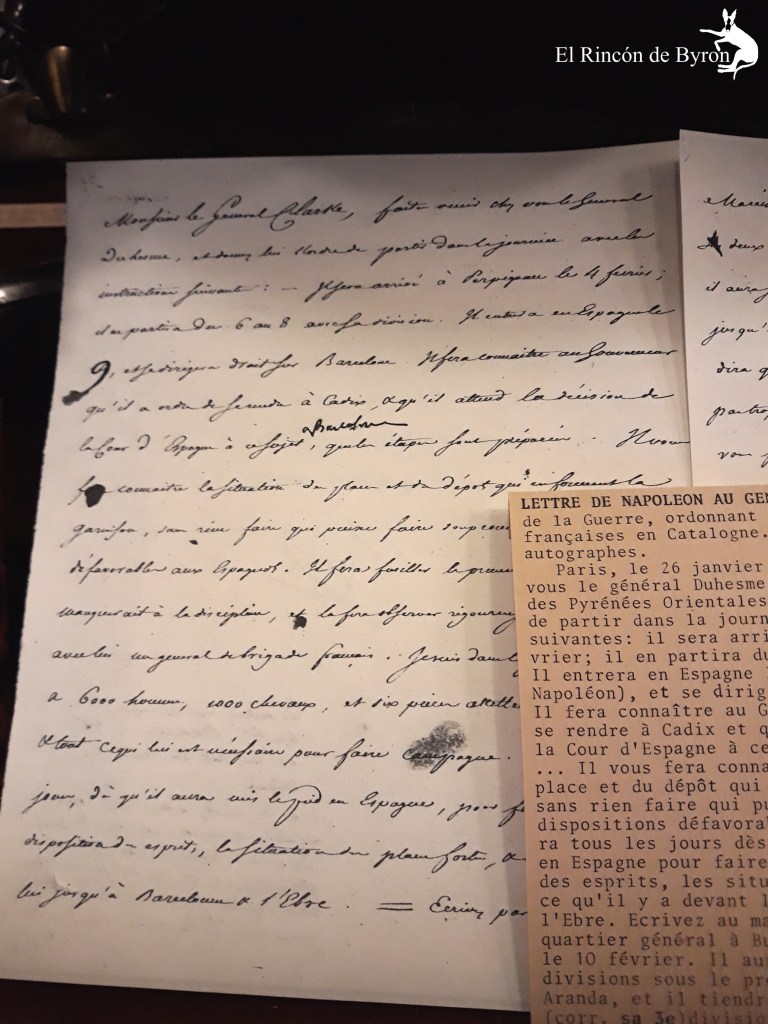 El Rincón de Byron
Monsieur le General Clarke, faites venir chez vous le General
Duhesme, et donnez lui l'ordre de partir dans la journée avec les
instructions suivant : — Il sera arrivé à Perpignan le 4 fevrier ;
il en partira du 6 au 8 avec sa division. Il entrera en Espagne le
9, et se dirigera droit sur Barcelone. Il fera connaitre au Gouverneur
qu'il a ordre de se rendre à Cadix, & qu'il attend la décision de
à Barcelone
la Cour d'Espagne à ce sujet, que les étapes sont préparées. Il vous
fera connaitre la situation de la place et du dépot qui en forment la
garnison, sans rien faire qui puisse faire soupçonner
défavorables aux Espagnols. Il fera fusiller le premier
manquerait à la discipline, et la fera observer
avec lui un general de brigade français. Je suis dans
a 6000 hommes, 1000 chevaux, et six pièces
& tout ce qui lui est nécessaire pour faire campagne.
jours, dès qu'il aura mis le pied en Espagne, pour
disposition des esprits, la situation des places fortes, &
lui jusqu'à Barcelone & l'Ebre. = Ecrivez
deux
il aura
jusqu'
dira
vous
LETTRE DE NAPOLEON AU GEN
de la Guerre, ordonnant
françaises en Catalogne.
autographes.
Paris, le 26 janvier
vous le général Duhesme
des Pyrénées Orientales
de partir dans la journ
suivantes: il sera arri
vrier; il en partira du
Il entrera en Espagne
Napoléon), et se dirig
Il fera connaître au G
se rendre à Cadix et q
la Cour d'Espagne à ce
... Il vous fera conna
place et du dépôt qui
sans rien faire qui pu
dispositions défavora
ra tous les jours dès
en Espagne pour faire
des esprits, les situ
ce qu'il y a devant l
l'Ebre. Ecrivez au ma
quartier général à Bu
le 10 février. Il au
divisions sous le pr
Aranda, et il tiendr
(corr. sa 3e)division